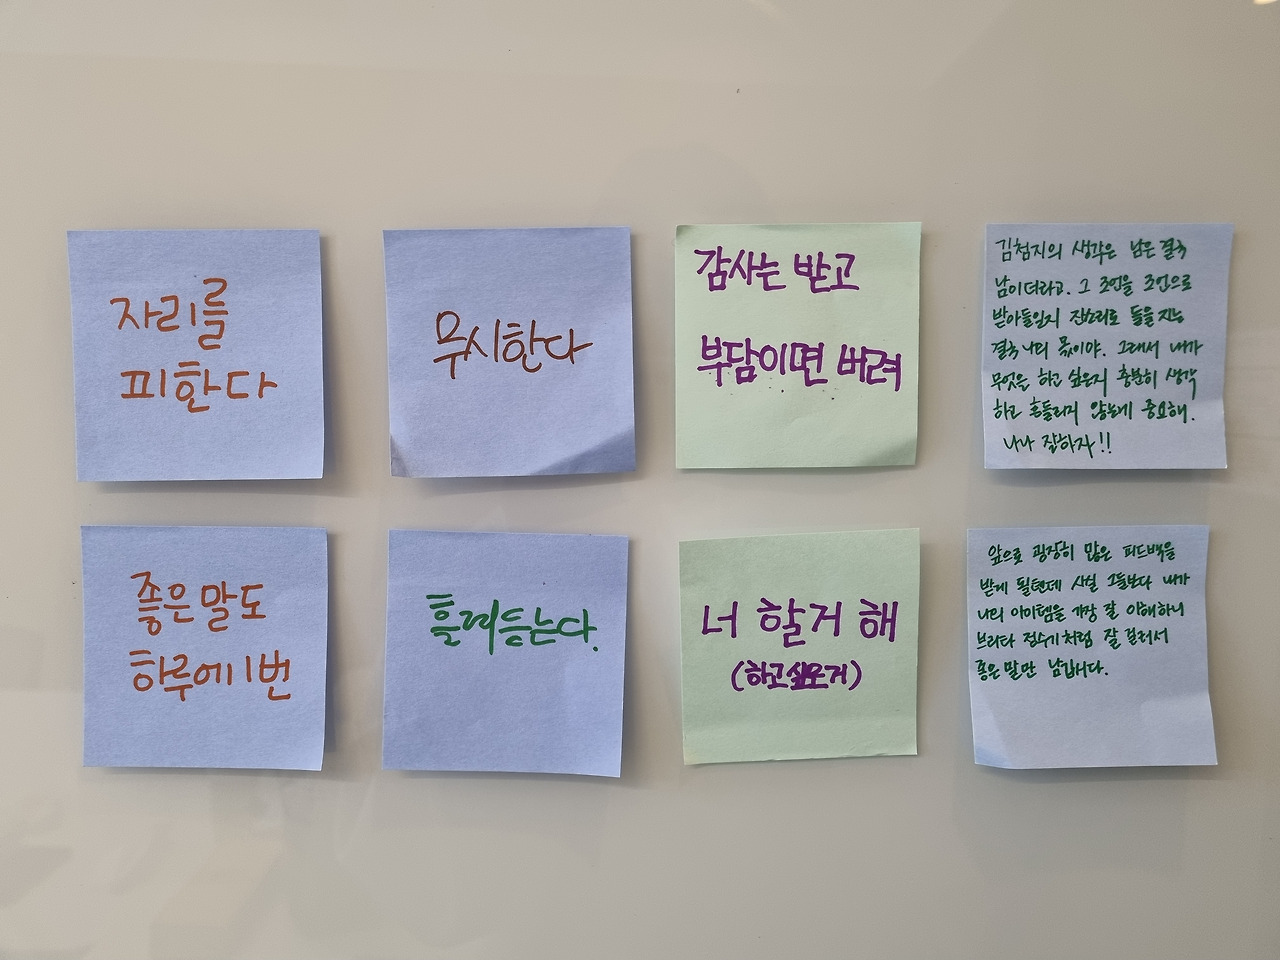 자리를
피한다
무시한다
감사는 받고
부담이면 버려
김첨지의 생각은 남은 결국
남이더라고. 그 조언을 조언으로
받아들일지 잔소리로 들을지는
결국 나의 몫이야. 그래서 내가
무엇을 하고 싶은지 충분히 생각
하고 흔들리지 않는게 중요해.
나나 잘하자!!
좋은 말도
하루에 1번
흘려듣는다.
너 할거 해
(하고싶은거)
앞으로 굉장히 많은 피드백을
받게 될텐데 사실 그들보다 내가
나의 아이템을 가장 잘 이해하니
브리타 정수기처럼 잘 걸러서
좋은 말만 남깁니다.